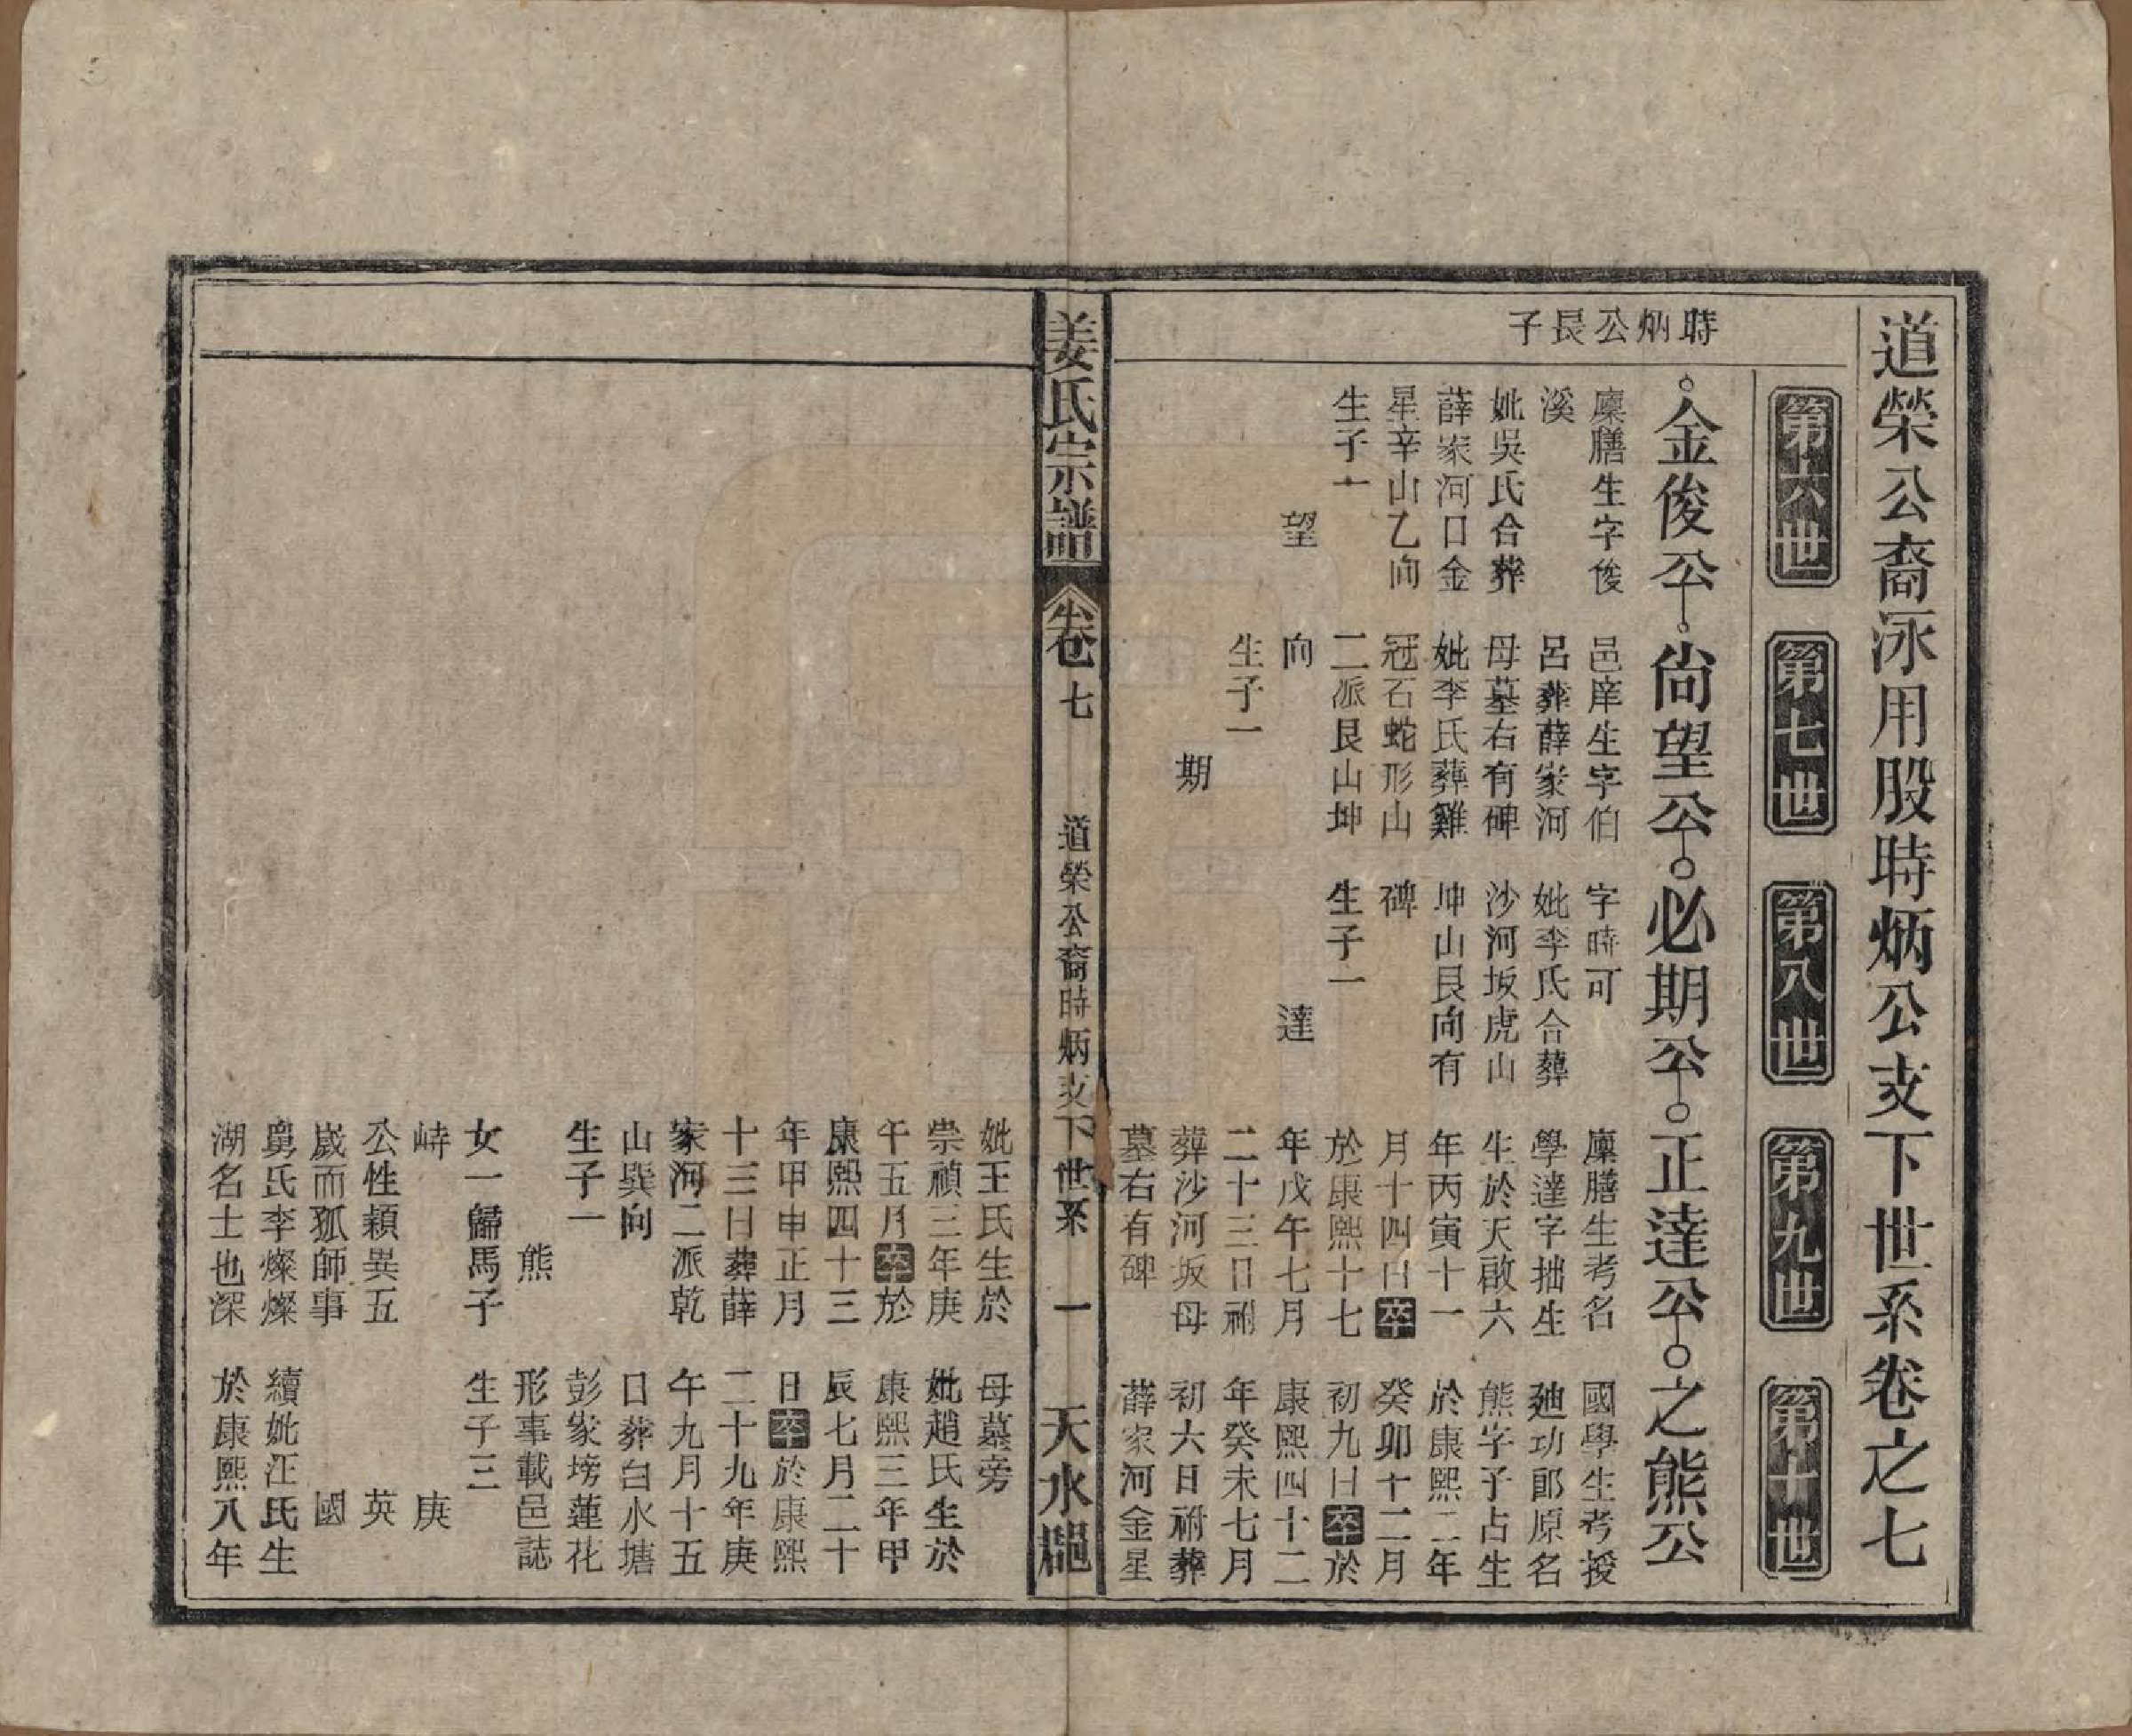 道榮公裔泳用股時炳公支下世系卷之七
第六世
第七世
第八世
第九世
第十世
時炳公長子
金俊公
尙望公
必期公
正達公
之熊公
廩膳生字俊
溪
妣吳氏合葬
薛家河口金
星辛山乙向
生子一
望
邑庠生字伯
呂葬薛家河
母墓右有碑
妣李氏葬雞
冠石蛇形山
二派艮山坤
向
生子一
期
字時可
妣李氏合葬
沙河坂虎山
坤山艮向有
碑
生子一
達
廩膳生考名
學達字拙生
生於天啟六
年丙寅十一
月十四日卒
於康熙十七
年戊午七月
二十三日祔
葬沙河坂母
墓右有碑
國學生考授
廸功郎原名
熊字子占生
於康熙二年
癸卯十二月
初九日卒於
康熙四十二
年癸未七月
初六日祔葬
薛家河金星
姜氏宗譜
卷七
道榮公裔時炳支下世系
一
天水郡
妣王氏生於
崇禎三年庚
午五月卒於
康熙四十三
年甲申正月
十三日葬薛
家河二派乾
山巽向
生子一
熊
女一歸馬子
峙
公性穎異五
歲而孤師事
舅氏李燦燦
湖名士也深
母墓旁
妣趙氏生於
康熙三年甲
辰七月二十
日卒於康熙
二十九年庚
午九月十五
日葬白水塘
彭家塝蓮花
形事載邑誌
生子三
庚
英
國
續妣汪氏生
於康熙八年